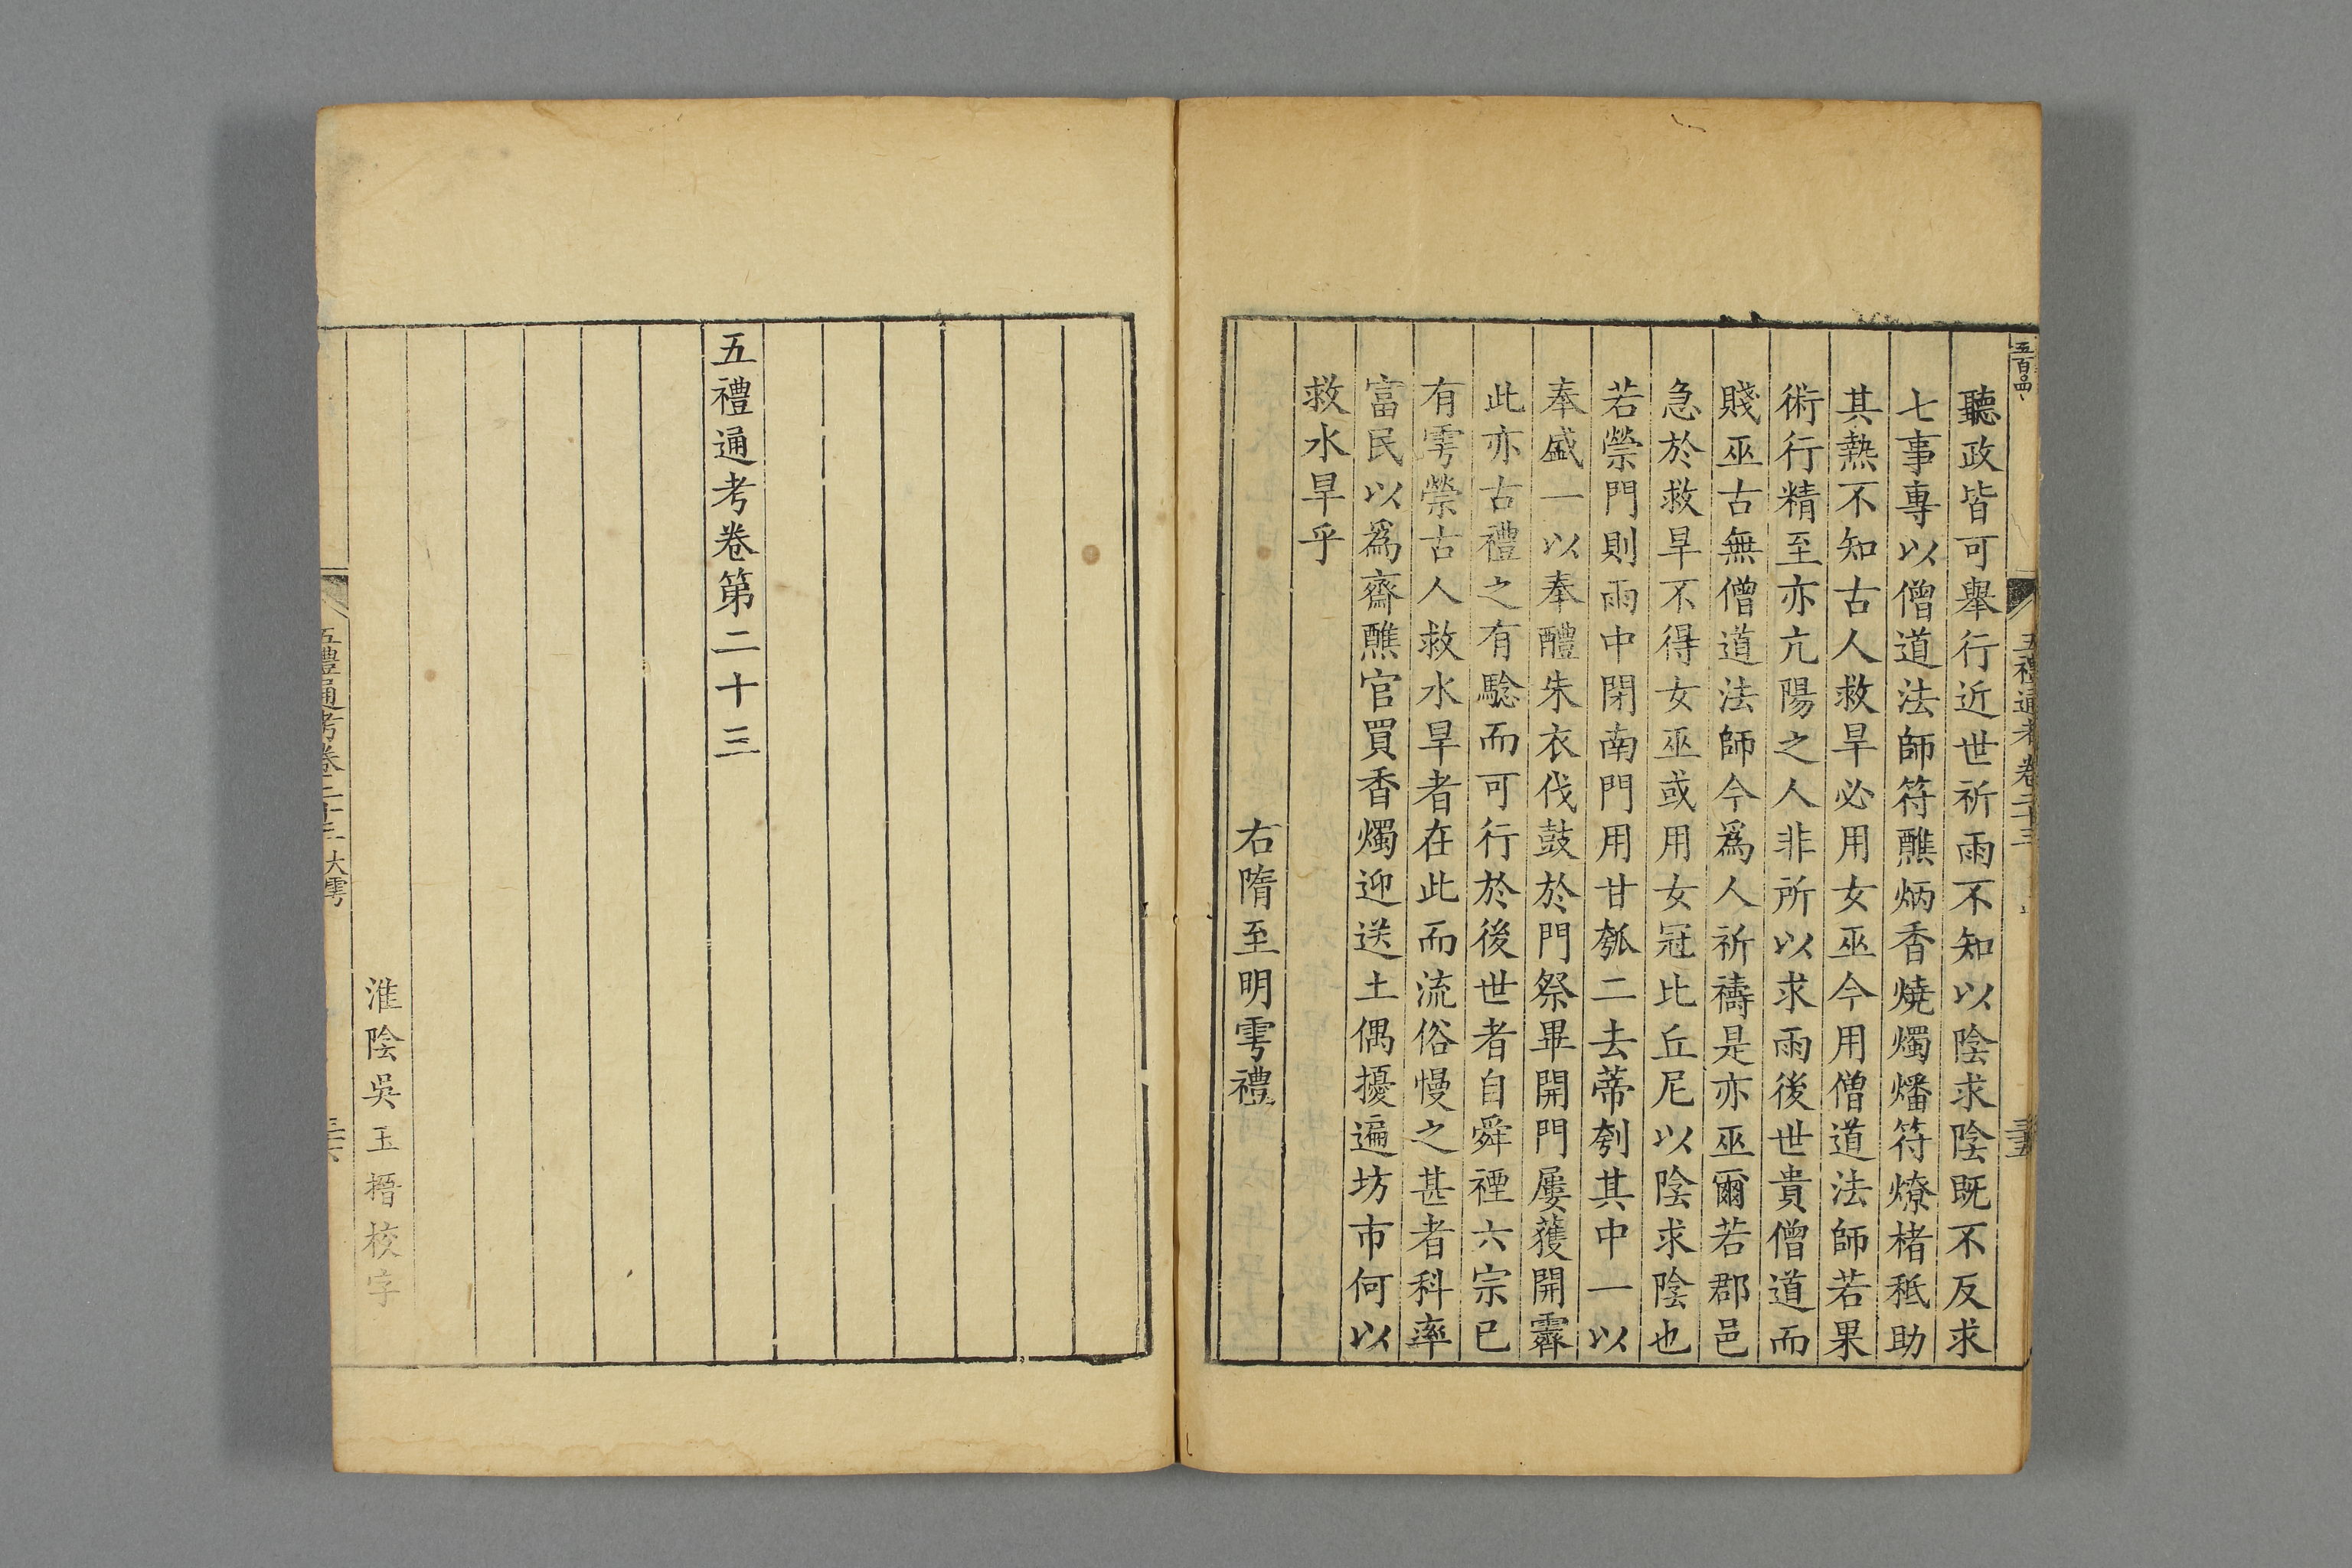 五百四
五禮通考卷二十三
三十五
聽政皆可舉行近世祈雨不知以陰求陰既不反求
七事專以僧道法師符醮炳香燒燭燔符燎楮秪助
其熱不知古人救旱必用女巫今用僧道法師若果
術行精至亦亢陽之人非所以求雨後世貴僧道而
賤巫古無僧道法師今爲人祈禱是亦巫爾若郡邑
急於救旱不得女巫或用女冠比丘尼以陰求陰也
若禜門則雨中閉南門用甘瓠二去蒂刳其中一以
奉盛一以奉醴朱衣伐鼓於門祭畢開門屢獲開霽
此亦古禮之有騐而可行於後世者自舜禋六宗已
有雩禜古人救水旱者在此而流俗慢之甚者科率
富民以爲齋醮官買香燭迎送土偶擾遍坊市何以
救水旱乎
右隋至明雩禮
五禮通考卷第二十三
淮陰吳玉搢校字
五禮通考卷二十三 大雩
三十六